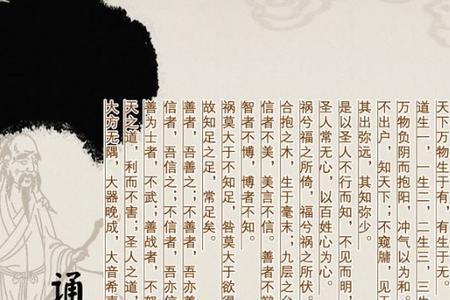 天下万物生于有,有生于无。
道生一,一生二,二生三,三生
万物负阴而抱阳,冲气以为和
不出户,知天下;不窥牖,见
其出弥远,其知弥少。
是以圣人不行而知,不见而明,
圣人常无心,以百姓心为心。
祸兮福之所倚,福兮祸之所伏
合抱之木,生于毫末;九层之
信者不美,美言不信。善者不
智者不博,博者不知。
祸莫大于不知足,咎莫大于欲得
故知足之足,常足矣。
善者,吾善之;不善者,吾亦
信者,吾信之;不信者,吾亦信
善为士者,不武;善战者,不
天之道,利而不害;圣人之道,
大方无隅,大器晚成,大音希
诵